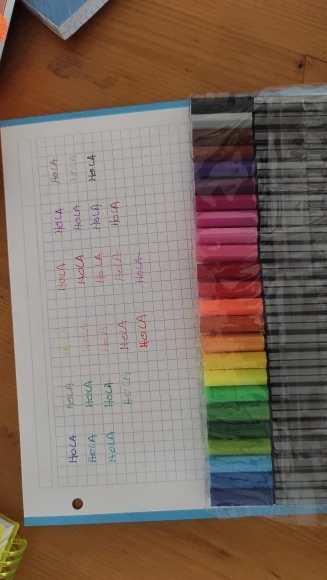 HoLA HoLA HoLA HoLA HoLA HoLA
HoLA HoLA HoLA HoLA HoLA HoLA
HoLA HoLA HoLA HoLA HoLA HoLA
HoLA HoLA HoLA HoLA
HoLA HoLA